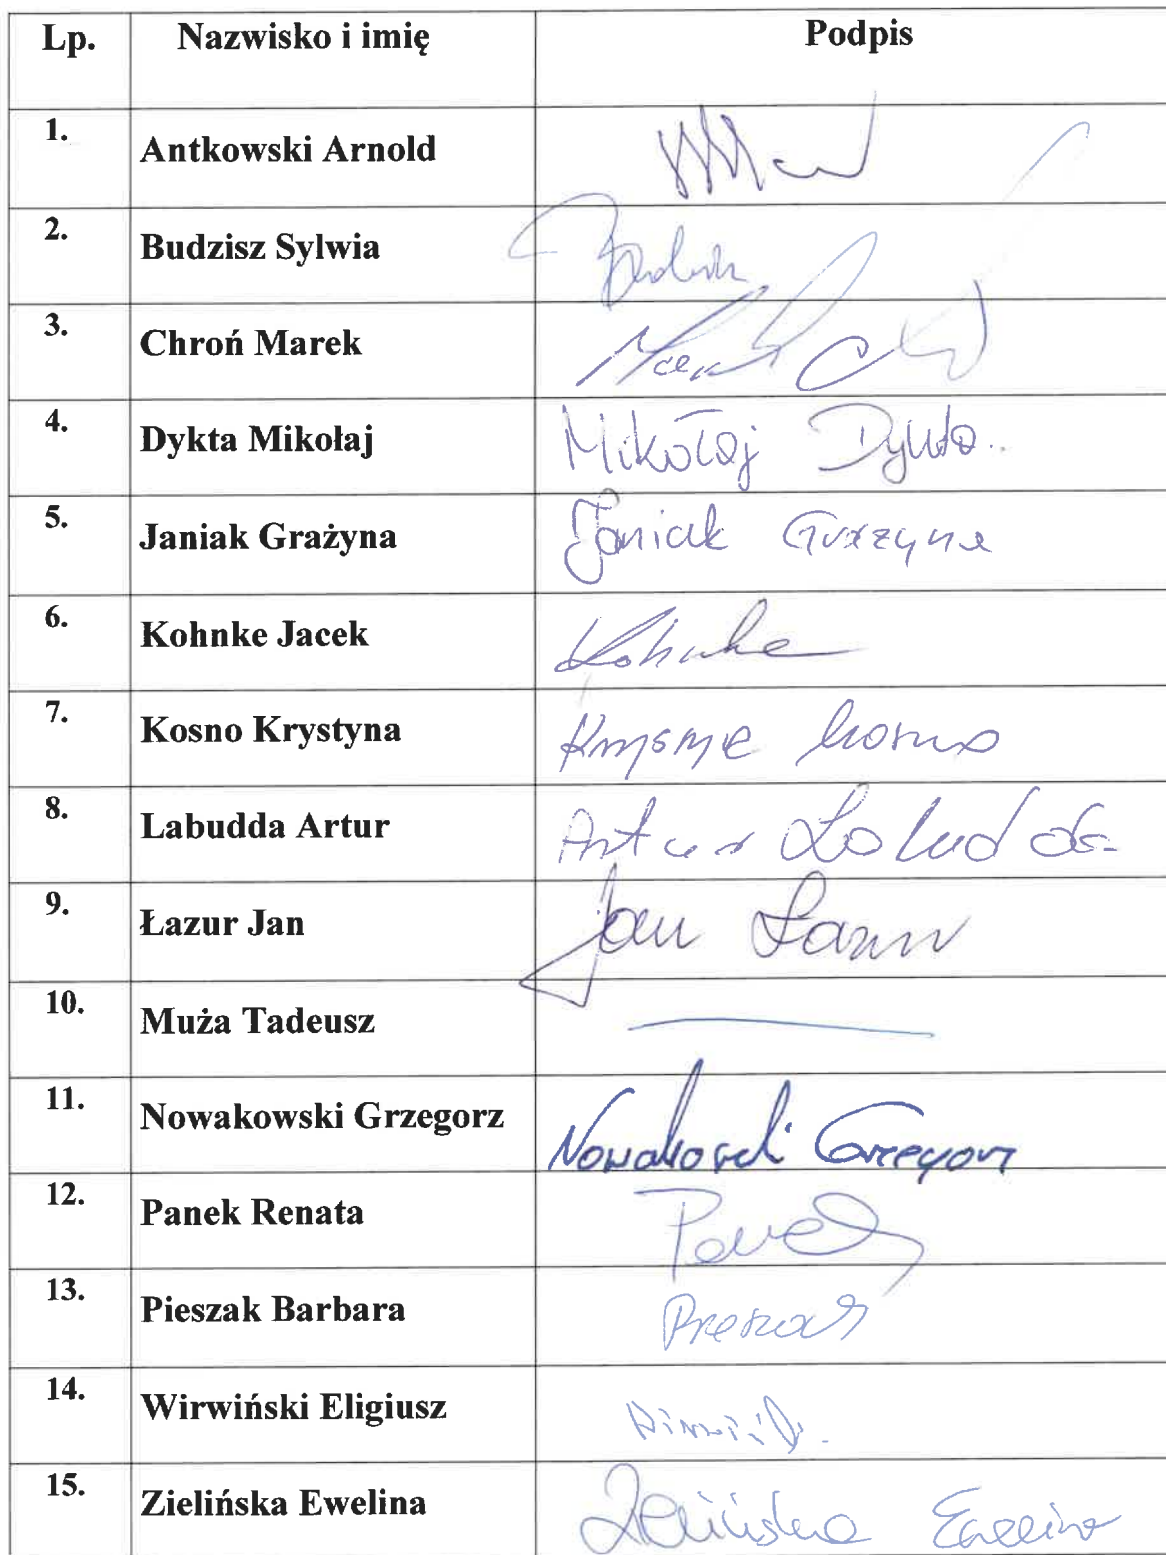 Lp. Nazwisko i imię Podpis
1. Antkowski Arnold
2. Budzisz Sylwia
3. Chroń Marek Marek
4. Dykta Mikołaj Mikołaj Dykta
5. Janiak Grażyna Janiak Grażyna
6. Kohnke Jacek Kohnke
7. Kosno Krystyna Krystyna Kosno
8. Labudda Artur Artur Labudda
9. Łazur Jan Jan Łazur
10. Muża Tadeusz
11. Nowakowski Grzegorz Nowakowski Grzegorz
12. Panek Renata Panek
13. Pieszak Barbara Pieszak
14. Wirwiński Eligiusz
15. Zielińska Ewelina Zielińska Ewelina